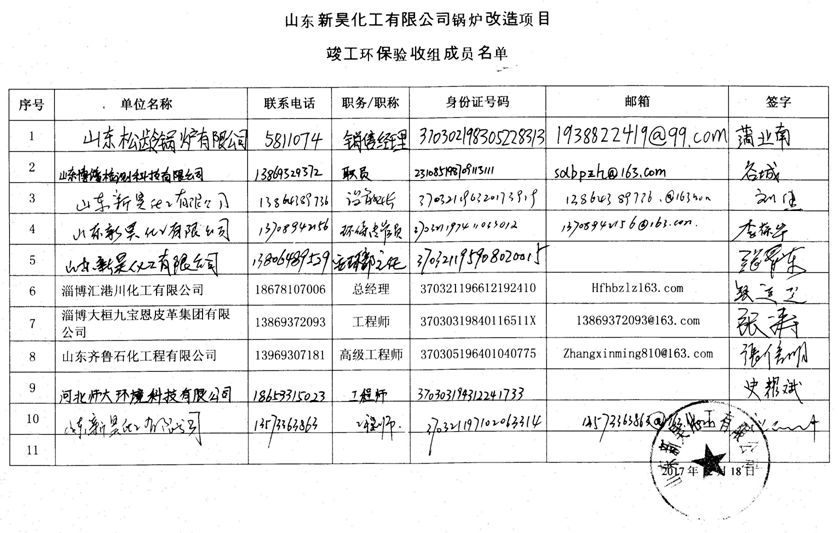 山东新昊化工有限公司锅炉改造项目
竣工环保验收组成员名单
序号 单位名称 联系电话 职务/职称 身份证号码 邮箱 签字
1 山东松龄锅炉有限公司 5811074 销售经理 370302198305228313 1938822419@99.com 蒲业南
2 有限公司 13869329372 职员 solbpzh@163.com
3 山东新昊化工有限公司 13864389736
4 山东新昊化工有限公司 13708942156 13708942156@163.com
5 山东新昊化工有限公司 13806489559 370321195908020015
6 淄博汇港川化工有限公司 18678107006 总经理 370321196612192410 Hfhbzlz163.com
7 淄博大桓九宝恩皮革集团有限公司 13869372093 工程师 37030319840116511X 13869372093@163.com 张涛
8 山东齐鲁石化工程有限公司 13969307181 高级工程师 370305196401040775 Zhangxinming810@163.com
9 河北师大环境科技有限公司 18653315023 工程师 370303194312241733
10 山东新昊化工有限公司 13573363863 工程师 370321197102063314
11
2017年 月18日